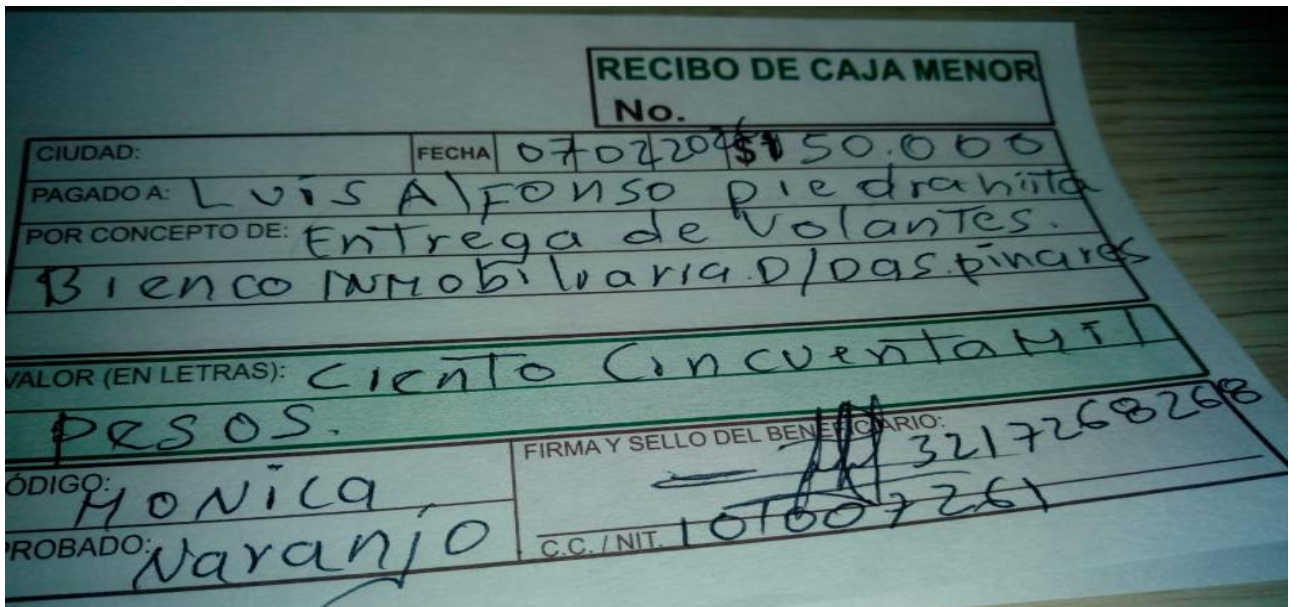 RECIBO DE CAJA MENOR
No.
CIUDAD: FECHA 07 02 202 $150.000
PAGADO A: LUiS AlFONSO piedrahiita
POR CONCEPTO DE: EnTrega de VolanTes.
Bienco INMobiliaria. D/Das. pinares
VALOR (EN LETRAS): CienTo CincuenTa MIl
pesos.
ÓDIGO: MONica FIRMA Y SELLO DEL BENEFICIARIO: 3217268268
PROBADO: Naranjo C.C. / NIT.